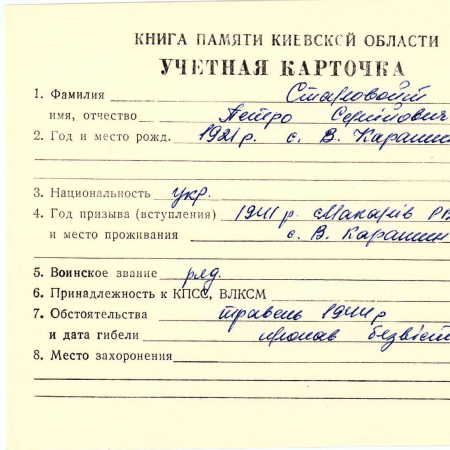 КНИГА ПАМЯТИ КИЕВСКОЙ ОБЛАСТИ
УЧЕТНАЯ КАРТОЧКА
1. Фамилия Старовойт
имя, отчество Петро Сергійович
2. Год и место рожд. 1921 р. с. В. Карашин
3. Национальность укр.
4. Год призыва (вступления) 1941 р. Макарів РВ
и место проживания с. В. Карашин
5. Воинское звание ряд.
6. Принадлежность к КПСС, ВЛКСМ
7. Обстоятельства травень 1944 р
и дата гибели пропав безвіст
8. Место захоронения